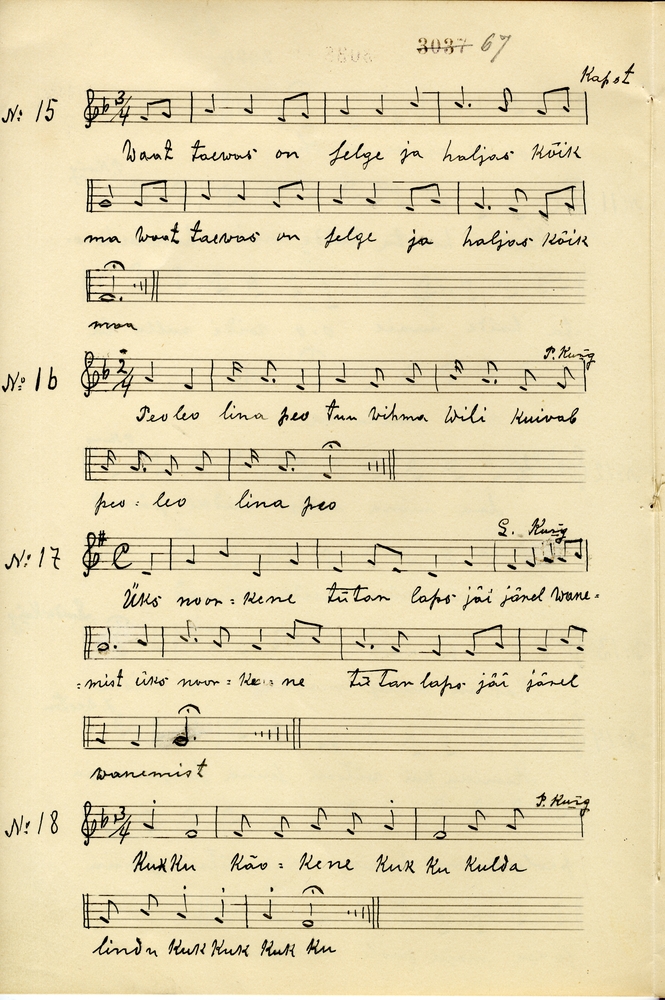 3037 67
Kapst
№ 15
3/4
Waat taewas on selge ja haljas kõik
ma Waat taewas on selge ja haljas kõik
maa
P. Kung
№ 16
2/4
Peoleo lina peo tuu wihma Wili kuivab
peo = leo lina peo
G. Kung
№ 17
C
Üks noor = kene tütar laps jäi järel wane =
= mist üks noor = ke = ne tütar laps jäi järel
wanemist
P. Kung
№ 18
3/4
Kukku Käo = kene Kuk ku kulda
lindu Kuk Kuk Kuk ku